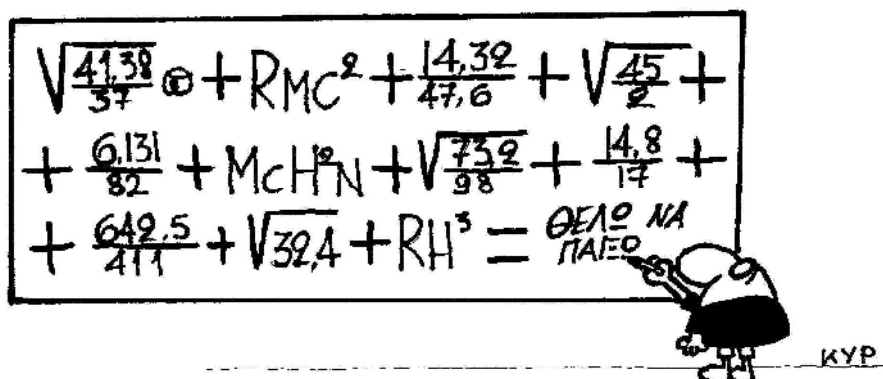 √41,38/37 ® + RMC² + 14,32/47,6 + √45/2 +
+ 6,131/82 + McH²N + √73,2/98 + 14,8/17 +
+ 642,5/411 + √32,4 + RH³ = ΘΕΛΩ ΝΑ
ΠΑΙΞΩ
ΚΥΡ